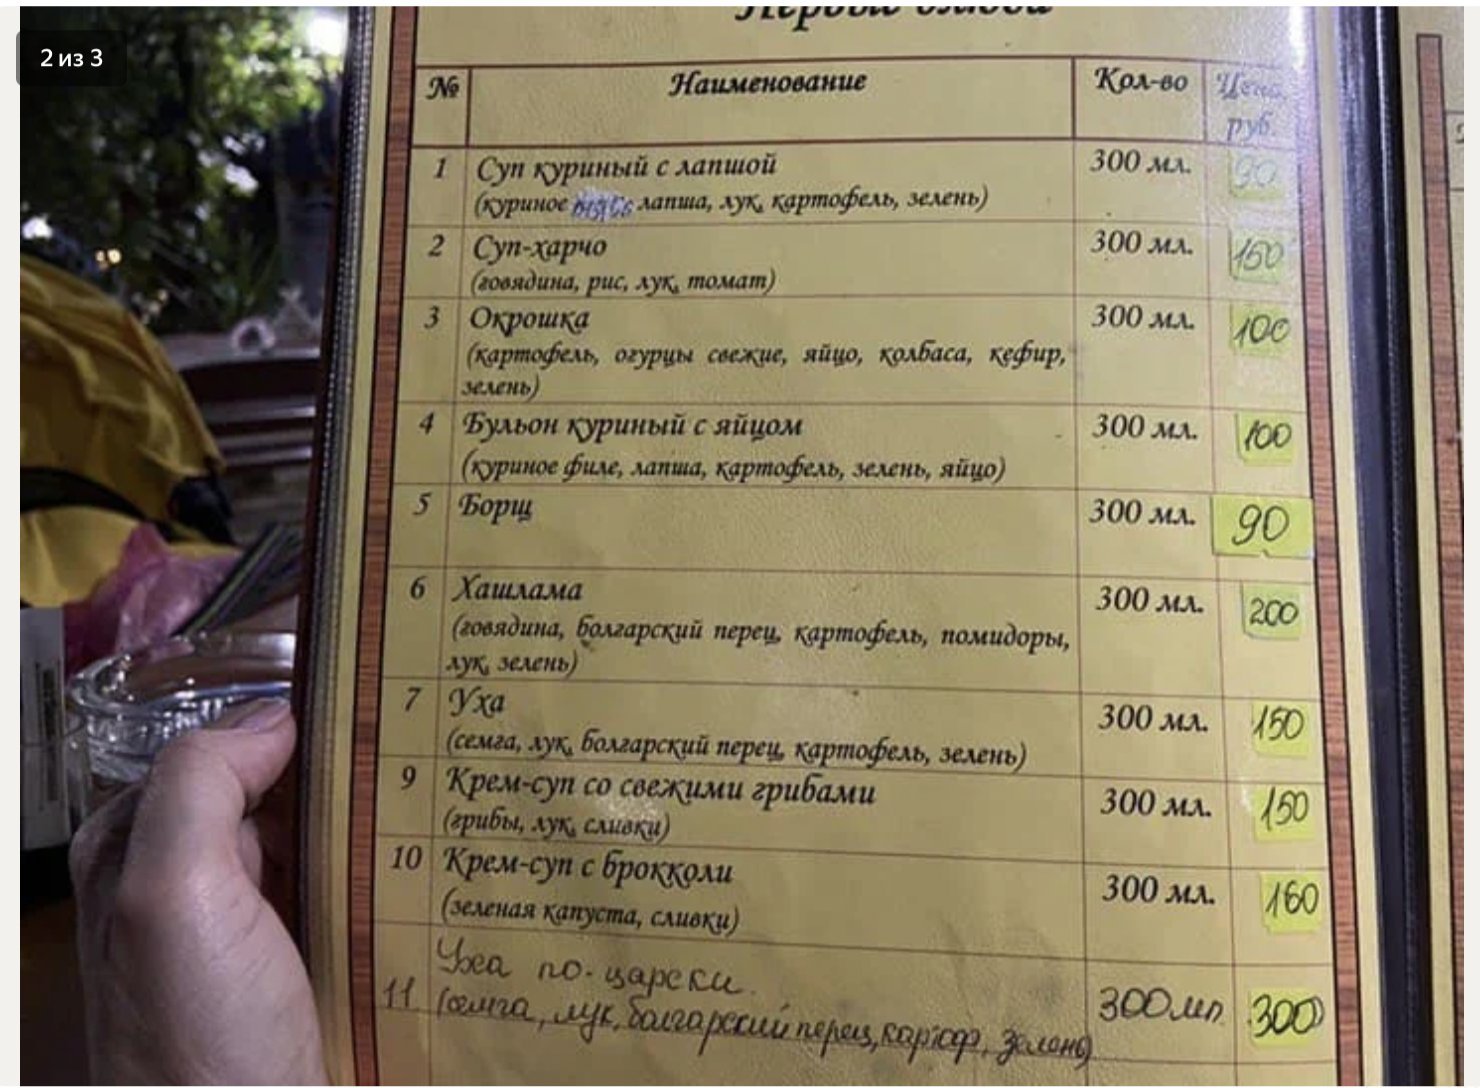 2 из 3
Первые блюда
№ Наименование Кол-во Цена, руб.
1 Суп куриный с лапшой 300 мл. 90
(куриное мясо лапша, лук, картофель, зелень)
2 Суп-харчо 300 мл. 150
(говядина, рис, лук, томат)
3 Окрошка 300 мл. 100
(картофель, огурцы свежие, яйцо, колбаса, кефир,
зелень)
4 Бульон куриный с яйцом 300 мл. 100
(куриное филе, лапша, картофель, зелень, яйцо)
5 Борщ 300 мл. 90
6 Хашлама 300 мл. 200
(говядина, болгарский перец, картофель, помидоры,
лук, зелень)
7 Уха 300 мл. 150
(семга, лук, болгарский перец, картофель, зелень)
9 Крем-суп со свежими грибами 300 мл. 150
(грибы, лук, сливки)
10 Крем-суп с брокколи 300 мл. 160
(зеленая капуста, сливки)
11 Уха по-царски. 300 мл. 300
(семга, лук, болгарский перец, картоф, зелень)